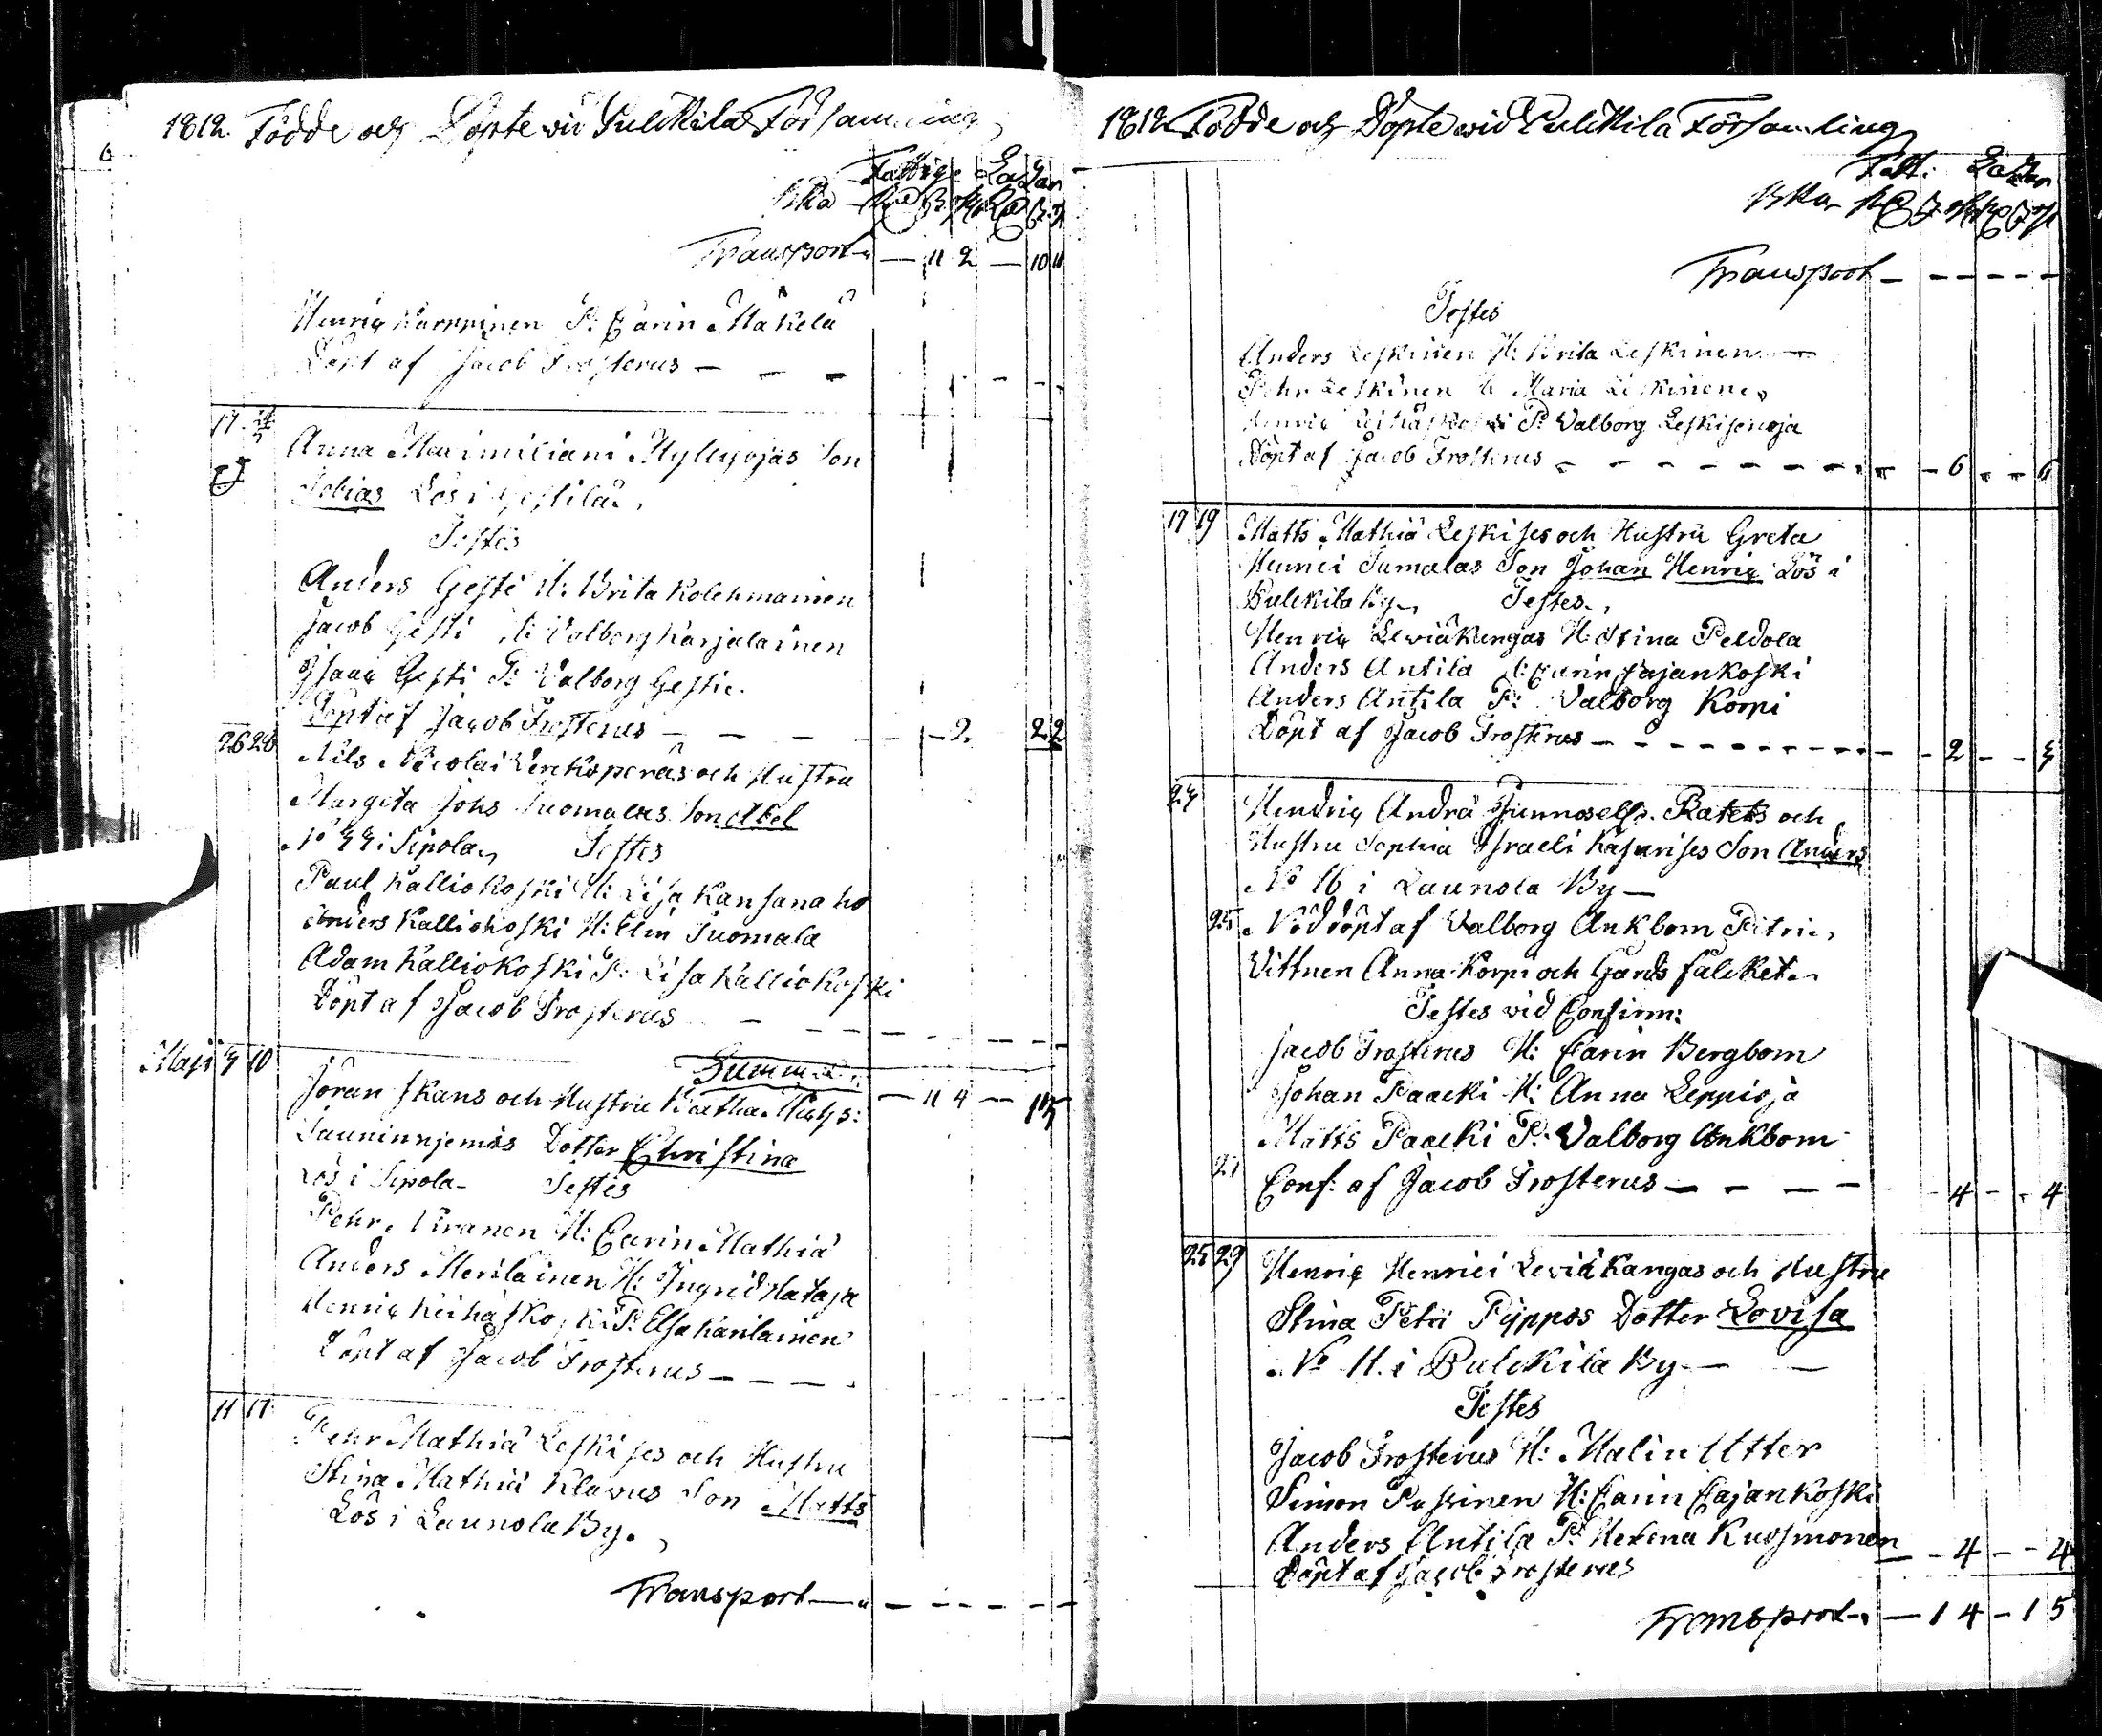 1812. Födde och Döpte wid Pulkkila Församling
Fattig. Ladan
Transport — 11 2 — 10 11
Henric Karppinen P: Carin Mäkelä
Döpt af Jacob Frosterus — — —
17.
Anna Maximiliani Myllyojas Son
Tobias Lös i Gestilä.
Testes
Anders Gesti H: Brita Kolehmainen
Jacob Gesti H: Valborg Karjalainen
Isaac Gesti P: Valborg Gesti.
Döpt af Jacob Frosterus — — — — 2. 2 2
26 28 Nils Nicolai Lenkoperäs och Hustru
Margeta Johs Tuomalas Son Abel
No 44 i Sipola Testes
Paul Kalliokoski H: Lisa Kansanaho
Anders Kalliokoski H: Elin Tuomala
Adam Kalliokoski P: Lisa Kalliokoski
Döpt af Jacob Frosterus — — — — — —
Summa — 11 4 —
Maji 4 10 Jöran Skans och Hustru
Dotter Christina
Lös i Sipola Testes
Pehr Niranen H: Carin Mathiä
Anders Meriläinen H: Ingrid Hataja
Henric Keihäskoski P: Elsa Karilainen
Döpt af Jacob Frosterus — — — —
11 17 Pehr Mathiä Leskises och Hustru
Stina Mathiä Klavus Son Matts
Lös i Launola By.
Transport — — — — — —
1812 Födde och Döpte wid Pulkkila Församling
Fatt: Ladan
Transport — — — — — —
Testes
Anders Leskinen H: Brita Leskinen
Pehr Leskinen H Maria Leskinen
Henric Keihäskoski P: Valborg Leskisenoja
Döpt af Jacob Frosterus — — — — — — 6 — — 6
17 19 Matts Mathiä Leskises och Hustru Greta
Henrici Tumalas Son Johan Henric Lös i
Pulckila By Testes
Henric Leviäkangas H: Stina Peldola
Anders Antila H: Carin Cajankoski
Anders Antila P: Valborg Korpi
Döpt af Jacob Frosterus — — — — — — 2 — — 3
24 Hendric Andrä Junnoselfs. Ratets och
Hustru Sophia Israeli Kasurises Son Anders
No 16 i Launola By —
25 Nöddöpt af Valborg Ankbom Pitric
Vittnen Anna Korpi och Gårds fålcket.
Testes vid Confirm:
Jacob Frosterus H: Carin Bergbom
Johan Paacki H: Anna Leppiojä
Matts Paacki P: Valborg Ankbom
27 Conf: af Jacob Frosterus — — — — 4 — — 4
25 29 Henric Henrici Leviäkangas och Hustru
Stina Petri Pyppos Dotter Lovisa
No 11. i Pulckila By — —
Testes
Jacob Frosterus H: Malin Utter
Simon Pussinen H: Carin Cajankoski
Anders Antila P: Helena Kuosmonen — 4 — — 4
Döpt af Jacob Frosterus
Transport — 1 4 — 1 5